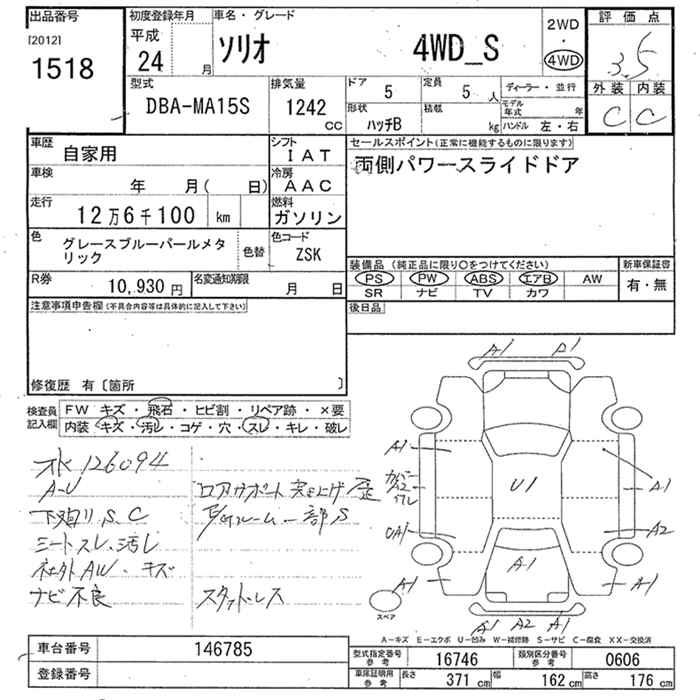 出品番号
[2012]
1518
初度登録年月
平成
24 月
車名・グレード
ソリオ 4WD_S
2WD
・
4WD
評価点
3.5
外装 内装
C C
型式
DBA-MA15S
排気量
1242 cc
ドア 5
定員 5 人
形状 ハッチB
積載 kg
ディーラー・並行
モデル年式 年
ハンドル 左・右
車歴 自家用
シフト IAT
車検 年 月( 日)
冷房 AAC
走行 12万6千100 km
燃料 ガソリン
色 グレースブルーパールメタリック
色替
色コード ZSK
R券 10,930 円
名変通知期限 月 日
セールスポイント(正常に機能するものに限ります)
両側パワースライドドア
装備品(純正品に限り○をつけてください)
新車保証書
PS PW ABS エアB AW
SR ナビ TV カワ
有・無
後日品
注意事項申告欄(不具合内容等は具体的に記入して下さい)
修復歴 有〔箇所 〕
検査員記入欄
FW キズ・飛石・ヒビ割・リペア跡・×要
内装 キズ・汚レ・コゲ・穴・スレ・キレ・破レ
126094
A-U
下廻り S.C
シートスレ、汚レ
社外AW、キズ
ナビ不良
ロアサポート突上げ歪
一部S
スタッドレス
A1 P1
A1
カバー
ワレ
UA1
A1
U1
A1
A1
A2
A1
A1 A2 A1
スペア
A-キズ E-エクボ U-凹み W-補修跡 S-サビ C-腐食 XX-交換済
車台番号 146785
登録番号
型式指定番号 参考 16746
類別区分番号 参考 0606
車庫証明用 参考 長さ 371 cm 幅 162 cm 高さ 176 cm